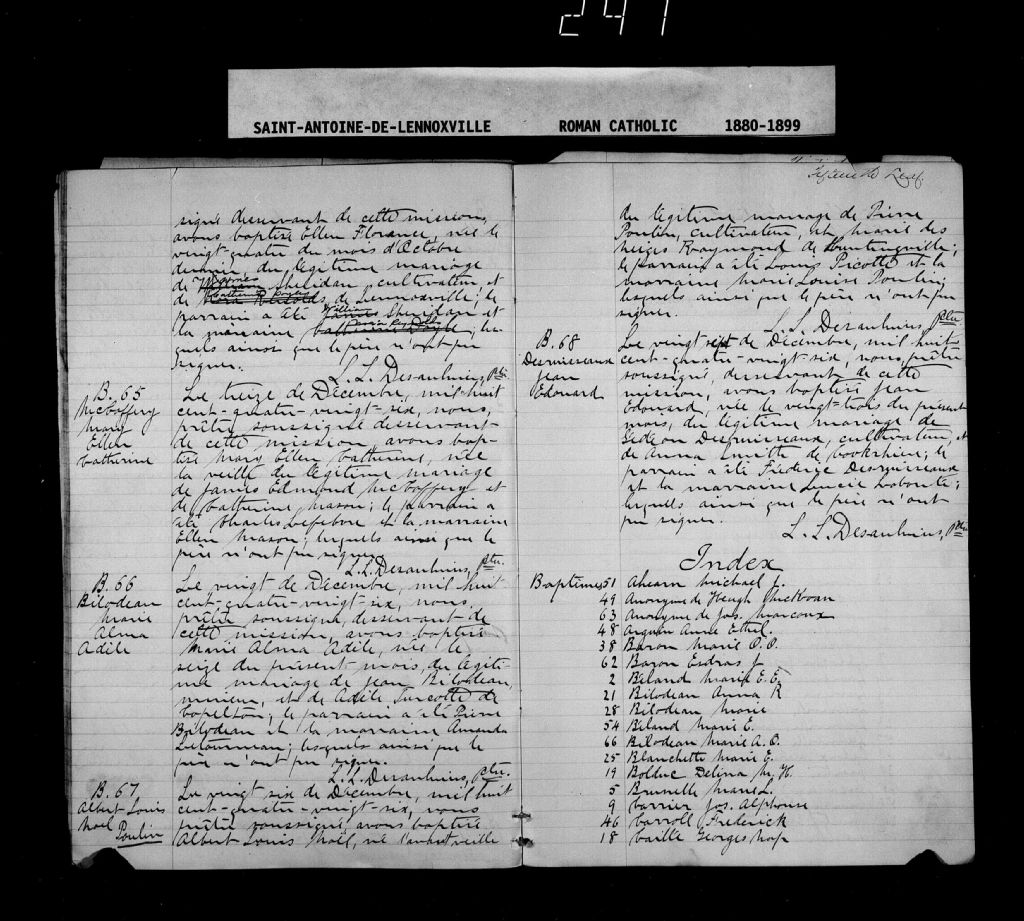 241
SAINT-ANTOINE-DE-LENNOXVILLE ROMAN CATHOLIC 1880-1899
signé desservant de cette mission,
avons baptisé Ellen Florance, née le
vingt-quatre du mois d'Octobre
dernier, du légitime mariage
de Sheridan, cultivateur, et
de de Lennoxville; le
parrain a été William Sheridan et
la marraine les-
quels ainsi que le père n'ont pu
signer.
L. L. Desaulniers, ptre.
B. 65
McCaffery
Mary
Ellen
Catherine
Le treize de Décembre, mil-huit
cent-quatre-vingt-six, nous,
prêtre soussigné desservant
de cette mission, avons bap-
tisé Mary Ellen Catherine, née
la veille du légitime mariage
de James Edmond McCaffery et
de Catherine Mason; le parrain a
été Charles Lefebvre et la marraine
Ellen Mason; lesquels ainsi que le
père n'ont pu signer.
L. L. Desaulniers, ptre.
B. 66
Bilodeau
Marie
Alma
Adèle
Le vingt de Décembre, mil huit
cent-quatre-vingt-six, nous,
prêtre soussigné, desservant de
cette mission, avons baptisé
Marie Alma Adèle, née le
seize du présent mois, du légiti-
me mariage de Jean Bilodeau,
mineur, et de Adèle Turcotte de
Capelton; le parrain a été Pierre
Bilodeau et la marraine Amanda
Letourneau; lesquels ainsi que le
père n'ont pu signer.
L. L. Desaulniers, ptre.
B. 67
Albert Louis
Noël
Poulin
Le vingt six de Décembre, mil huit
cent-quatre-vingt-six, nous
prêtre soussigné avons baptisé
Albert Louis Noël, né l'avant veille
Leaf.
du légitime mariage de Pierre
Poulin, cultivateur, et Marie des
Neiges Raymond de Huntingville;
le parrain a été Louis Picotte et la
marraine Marie Louise Poulin;
lesquels ainsi que le père n'ont pu
signer.
L. L. Desaulniers, ptre
B. 68
Desruisseaux
Jean
Edouard
Le vingt sept de Décembre, mil huit
cent-quatre-vingt-six, nous, prêtre
soussigné, desservant de cette
mission, avons baptisé Jean
Edouard, née le vingt-trois du présent
mois, du légitime mariage de
Gédéon Desruisseaux, cultivateur, et
de Anna Smith de Cookshire; le
parrain a été Fréderic Desruisseaux
et la marraine Lucie Labonté;
lesquels ainsi que le père n'ont
pu signer.
L. L. Desaulniers, ptre
Index
Baptêmes 51 Ahearn Michael J.
49 Anonyme de Hugh
63 Anonyme de Jos. Marcoux
48 Arguin Anne Ethel.
38 Baron Marie O. O.
62 Baron Esdras J
2 Béland Marie E. E.
21 Bilodeau Anna R
28 Bilodeau Marie
54 Béland Marie E.
66 Bilodeau Marie A. A.
25 Blanchette Marie E.
19 Bolduc Delina M. H.
5 Brunelle Marie L.
9 Carrier Jos. Alphonse
46 Carroll Frederick
18 Caille Georges Nap